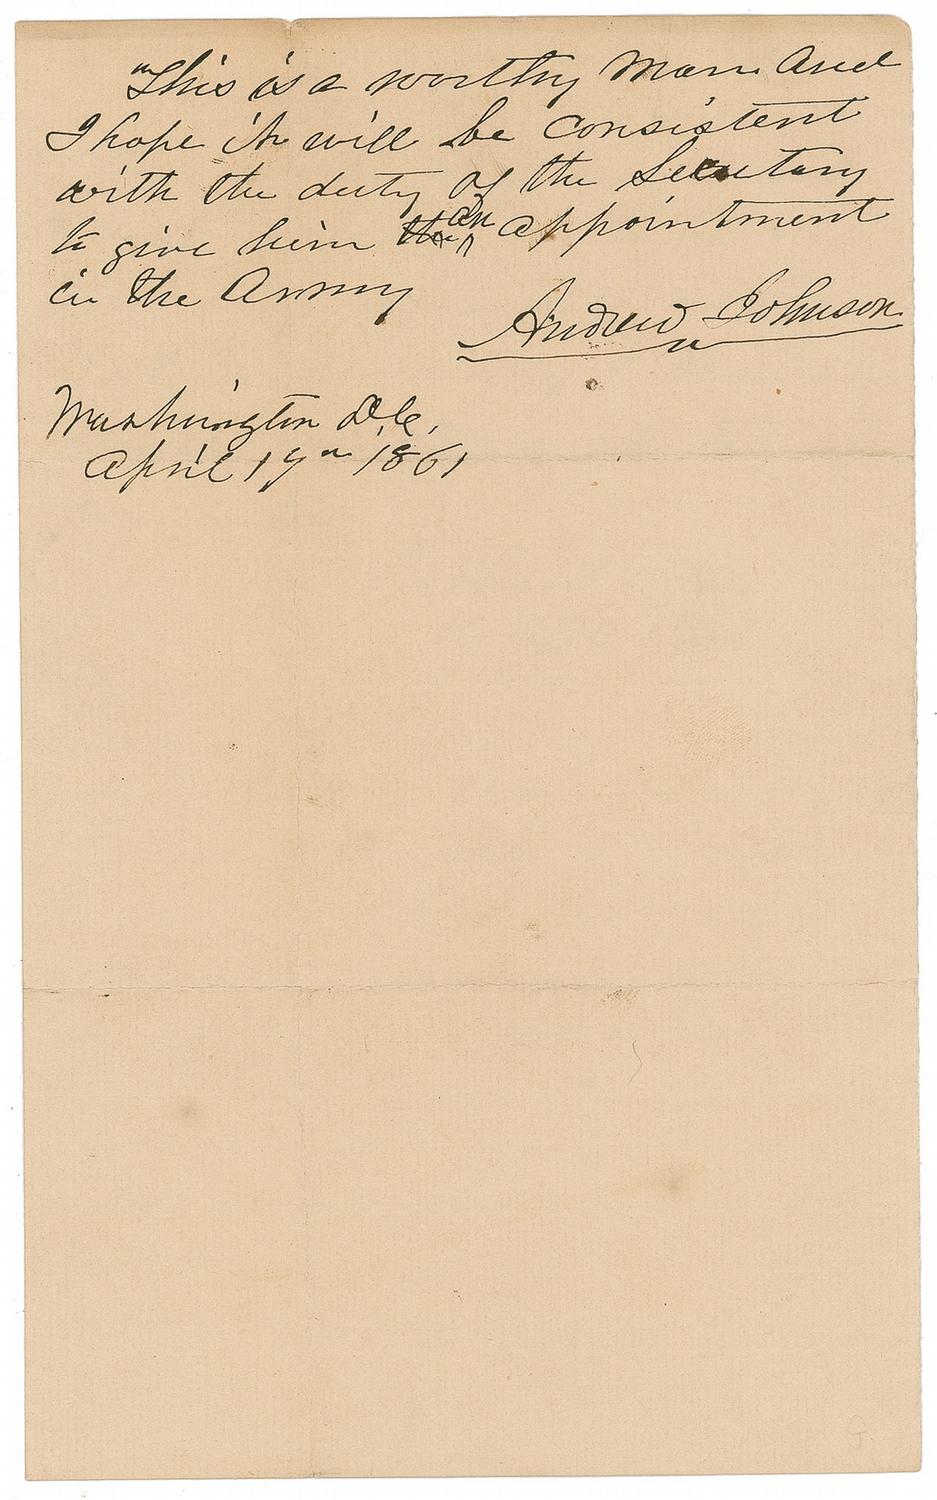 "This is a worthy man and
I hope it will be consistent
with the duty of the Secretary
to give him the an appointment
in the Army
Andrew Johnson
Washington D.C.
April 19th 1861